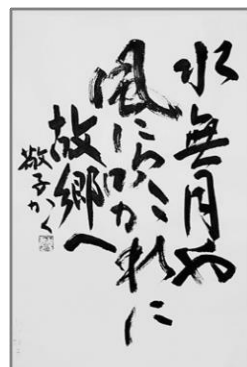 水無月や
風に吹かれに
故郷へ
敬子かく